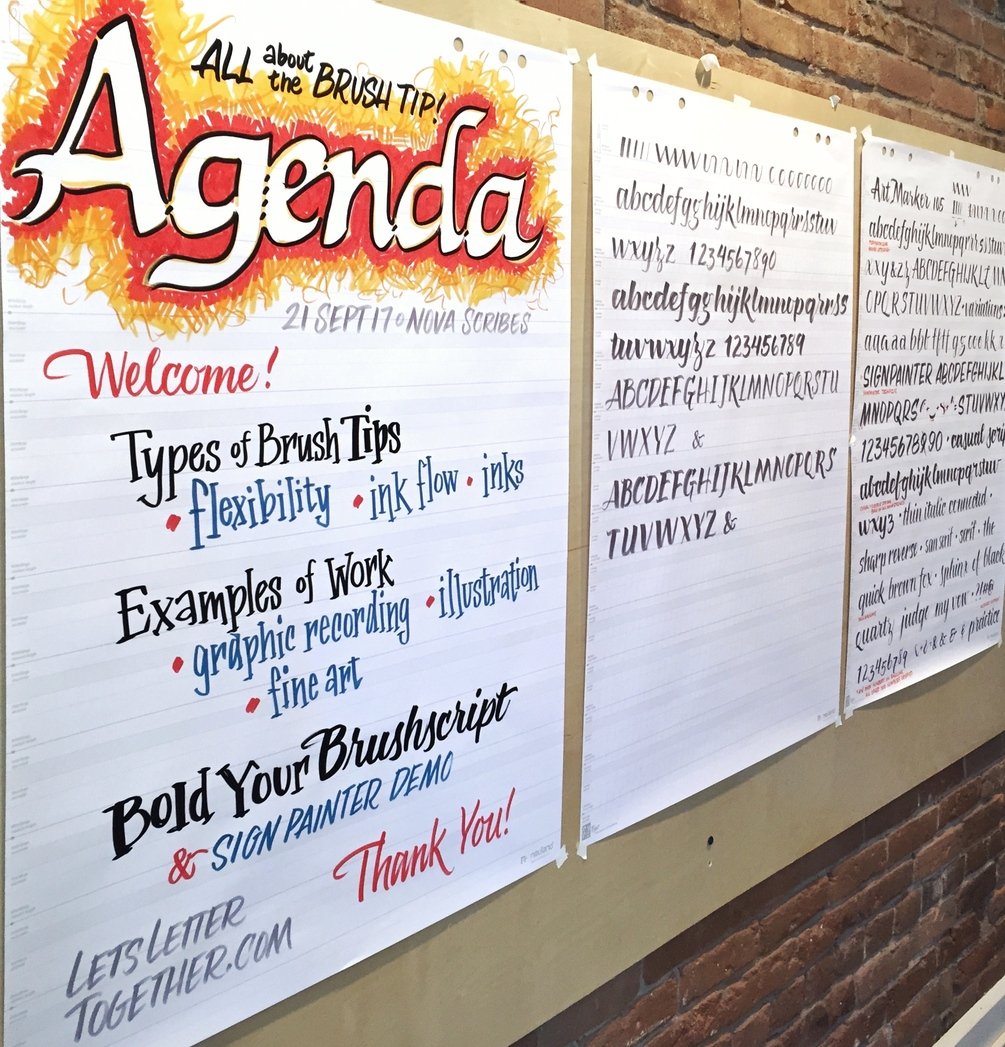 ALL about the BRUSH TIP!
Agenda
21 SEPT 17 o NOVA SCRIBES
Welcome!
Types of Brush Tips
• flexibility • ink flow • inks
Examples of Work
• graphic recording • illustration
• fine art
Bold Your Brushscript
& SIGN PAINTER DEMO
Thank You!
LETS LETTER
TOGETHER.COM
neuland
abcdefgghijklmnopqrrsstuw
wxyzz 1234567890
abcdefgghijklmnopqrrss
tuvwxyzz 123456789
ABCDEFGHIJKLMNOPQRSTU
VWXYZ &
ABCDEFGHIJKLMNOPQRS
TUVWXYZ &
Art Marker
abcdefghijklmnopqrrs
ABCDEFGHIJKLM
OPQRSTUVWXYZ • variations
SIGNPAINTER ABCDEFGHIJKL
MNOPQRS STUVWXY
1234567890 • casual scrip
abcdefghijklmnopqrstuv
wxyz • thin italic connected •
sharp reverse • san serif • serif • the
quick brown fox • sphinx of black
quartz judge my vow •
123456789 & & & practice